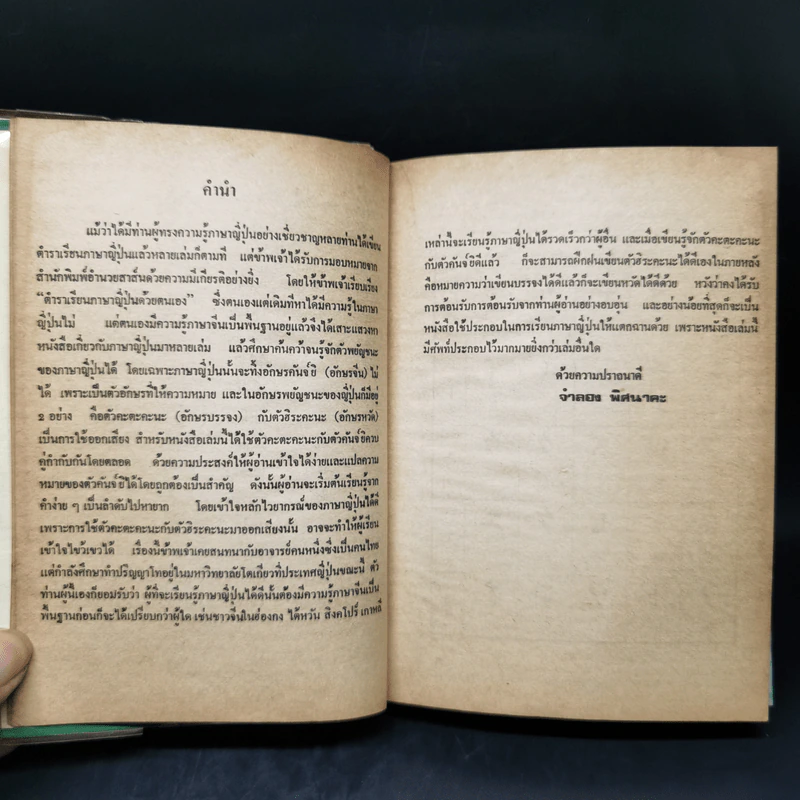 คำนำ
แม้ว่าได้มีท่านผู้ทรงความรู้ภาษาญี่ปุ่นอย่างเชี่ยวชาญหลายท่านได้เขียน
ตำราเรียนภาษาญี่ปุ่นแล้วหลายเล่มก็ตามที แต่ข้าพเจ้าได้รับการมอบหมายจาก
สำนักพิมพ์อำนวยสาส์นด้วยความมีเกียรติอย่างยิ่ง โดยให้ข้าพเจ้าเรียบเรียง
"ตำราเรียนภาษาญี่ปุ่นด้วยตนเอง" ซึ่งตนเองแต่เดิมทีหาได้มีความรู้ในภาษา
ญี่ปุ่นไม่ แต่ตนเองมีความรู้ภาษาจีนเป็นพื้นฐานอยู่แล้วจึงได้เสาะแสวงหา
หนังสือเกี่ยวกับภาษาญี่ปุ่นมาหลายเล่ม แล้วศึกษาค้นคว้าจนรู้จักตัวพยัญชนะ
ของภาษาญี่ปุ่นได้ โดยเฉพาะภาษาญี่ปุ่นนั้นจะทิ้งอักษรคันจ์ยิ (อักษรจีน) ไม่
ได้ เพราะเป็นตัวอักษรที่ให้ความหมาย และในอักษรพยัญชนะของญี่ปุ่นก็มีอยู่
๒ อย่าง คือตัวคะตะคะนะ (อักษรบรรจง) กับตัวฮิระคะนะ (อักษรหวัด)
เป็นการใช้ออกเสียง สำหรับหนังสือเล่มนี้ได้ใช้ตัวคะตะคะนะกับตัวคันจ์ยิควบ
คู่กำกับกันโดยตลอด ด้วยความประสงค์ให้ผู้อ่านเข้าใจได้ง่ายและแปลความ
หมายของตัวคันจ์ยิได้โดยถูกต้องเป็นสำคัญ ดังนั้นผู้อ่านจะเริ่มต้นเรียนรู้จาก
คำง่าย ๆ เป็นลำดับไปหายาก โดยเข้าใจหลักไวยากรณ์ของภาษาญี่ปุ่นได้ดี
เพราะการใช้ตัวคะตะคะนะกับตัวฮิระคะนะมาออกเสียงนั้น อาจจะทำให้ผู้เรียน
เข้าใจไขว้เขวได้ เรื่องนี้ข้าพเจ้าเคยสนทนากับอาจารย์คนหนึ่งซึ่งเป็นคนไทย
แต่กำลังศึกษาทำปริญญาโทอยู่ในมหาวิทยาลัยโตเกียวที่ประเทศญี่ปุ่นขณะนี้ ตัว
ท่านผู้นี้เองก็ยอมรับว่า ผู้ที่จะเรียนรู้ภาษาญี่ปุ่นได้ดีนั้นต้องมีความรู้ภาษาจีนเป็น
พื้นฐานก่อนก็จะได้เปรียบกว่าผู้ใด เช่นชาวจีนในฮ่องกง ไต้หวัน สิงคโปร์ เกาหลี
เหล่านี้จะเรียนรู้ภาษาญี่ปุ่นได้รวดเร็วกว่าผู้อื่น และเมื่อเขียนรู้จักตัวคะตะคะนะ
กับตัวคันจ์ยิดีแล้ว ก็จะสามารถฝึกฝนเขียนตัวฮิระคะนะได้ดีเองในภายหลัง
คือหมายความว่าเขียนบรรจงได้ดีแล้วก็จะเขียนหวัดได้ดีด้วย หวังว่าคงได้รับ
การต้อนรับการต้อนรับจากท่านผู้อ่านอย่างอบอุ่น และอย่างน้อยที่สุดก็จะเป็น
หนังสือใช้ประกอบในการเรียนภาษาญี่ปุ่นให้แตกฉานด้วย เพราะหนังสือเล่มนี้
มีศัพท์ประกอบไว้มากมายยิ่งกว่าเล่มอื่นใด
ด้วยความปรารถนาดี
จำลอง พิศนาคะ